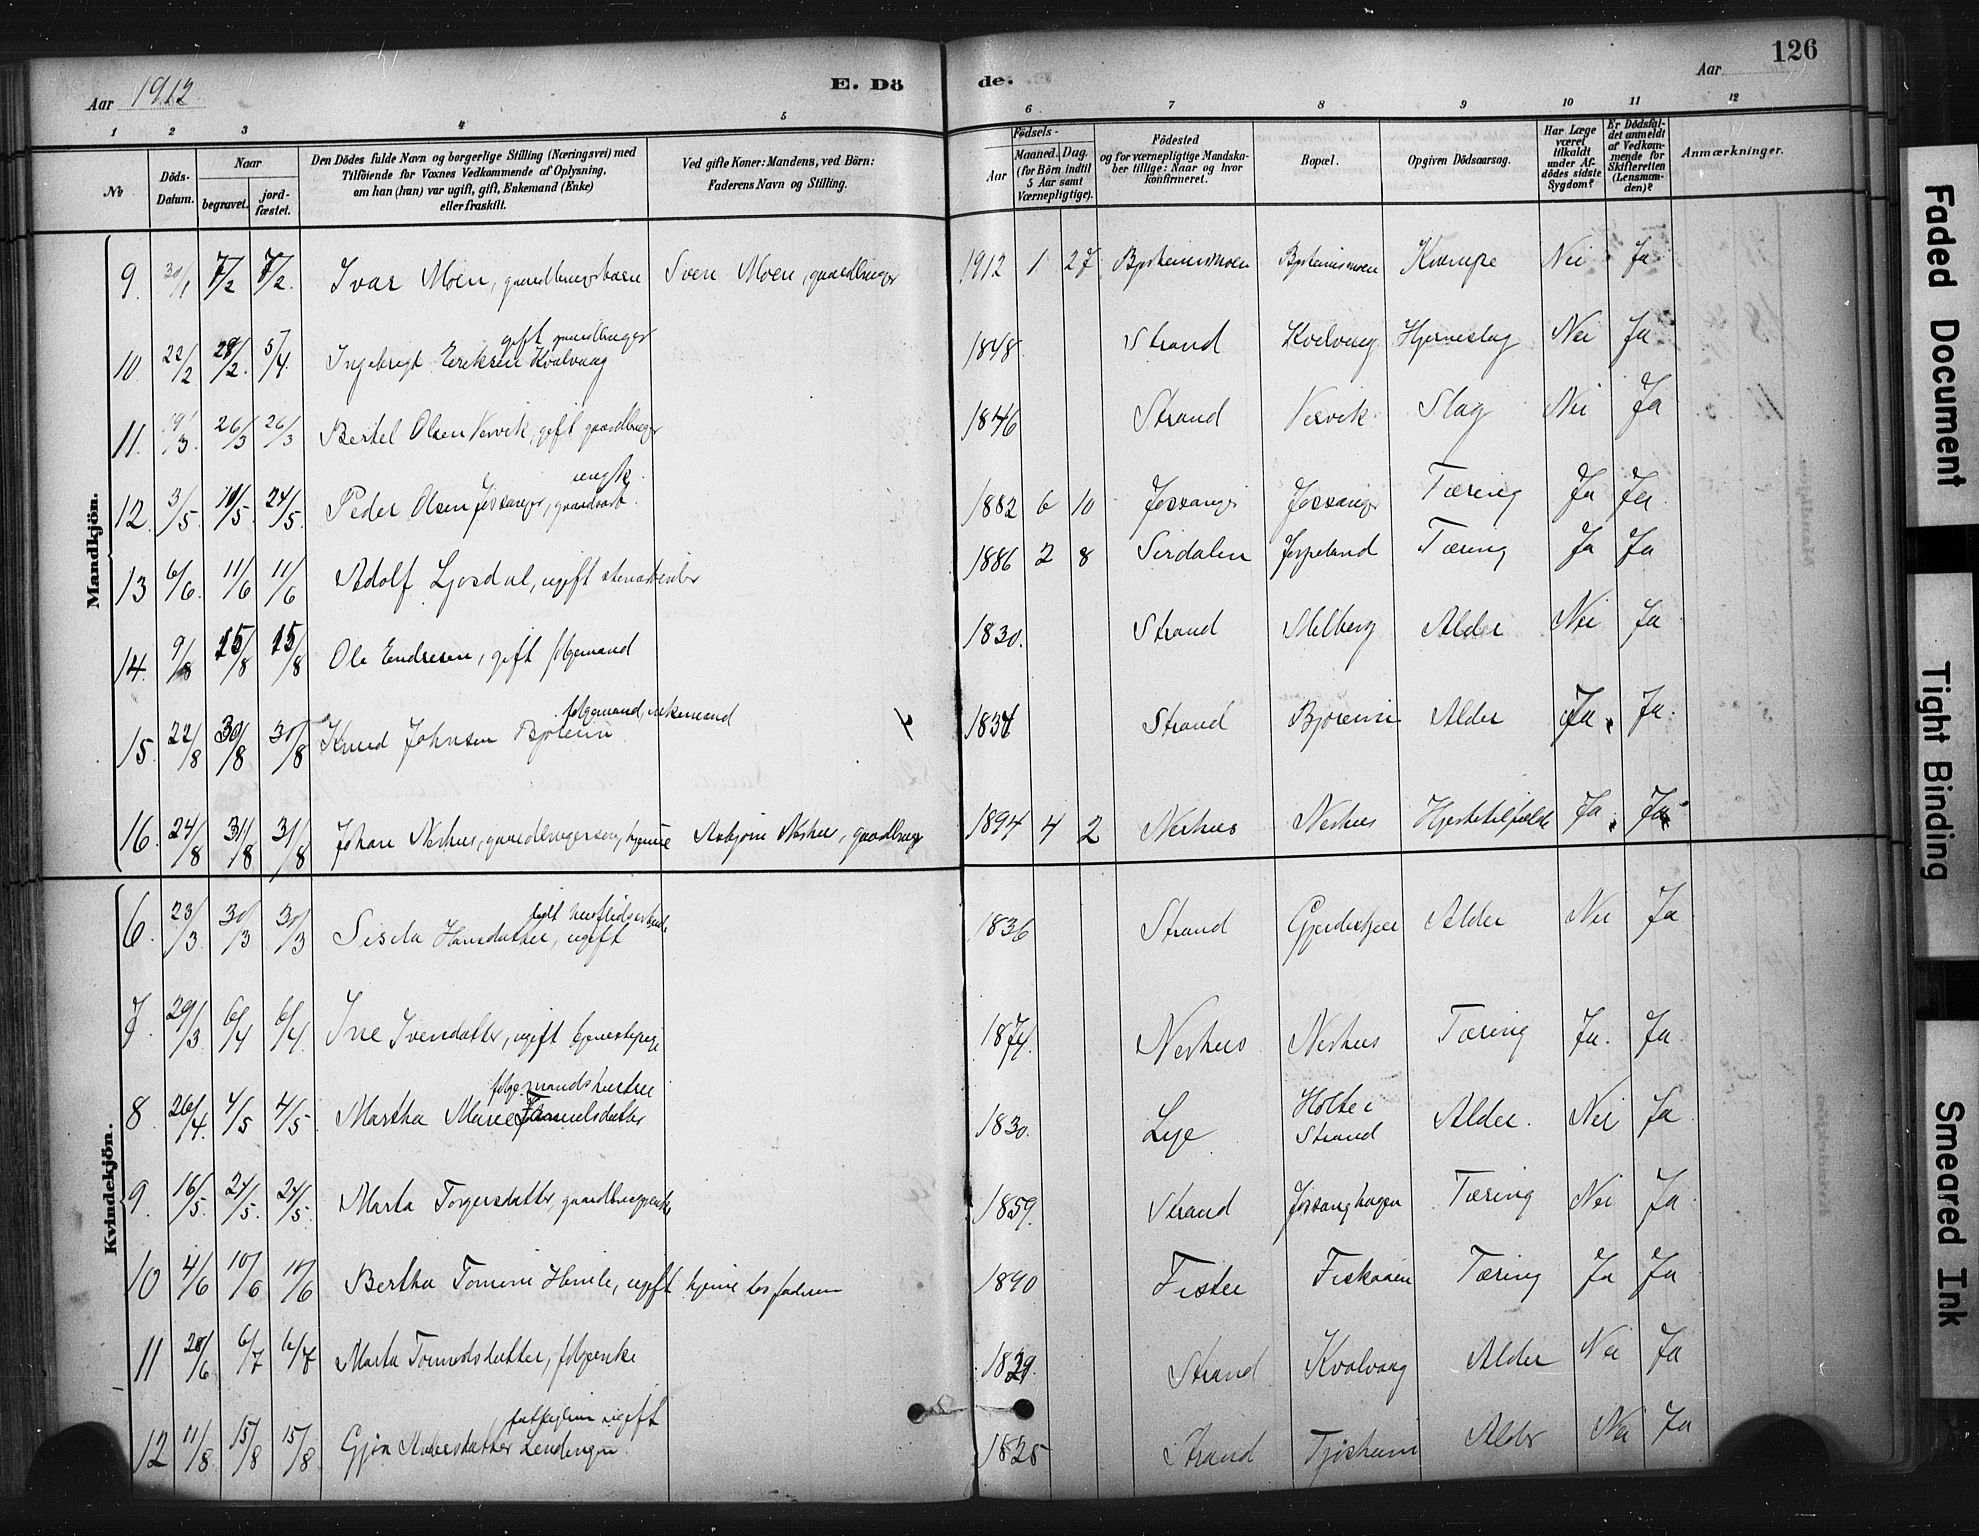 Aar 1912.
E. Döde.
Aar
126
1 2 3 4 5 6 7 8 9 10 11 12
No
Döds-Datum.
Naar
begravet.
jord-fæstet.
Den Dödes fulde Navn og borgerlige Stilling (Næringsvei) med
Tilföiende for Voxnes Vedkommende af Oplysning,
om han (hun) var ugift, gift, Enkemand (Enke)
eller fraskilt.
Ved gifte Koner: Mandens, ved Börn:
Faderens Navn og Stilling.
Födsels-
Aar
Maaned. Dag.
(for Börn indtil
5 Aar samt
Værnepligtige).
Födested
og for værnepligtige Mandska-
ber tillige: Naar og hvor
konfirmeret.
Bopæl.
Opgiven Dödsaarsag.
Har Læge
været
tilkaldt
under Af-
dödes sidste
Sygdom?
Er Dödsfal-
det anmeldt
af Vedkom-
mende for
Skifteretten
(Lensman-
den)?
Anmærkninger.
Mandkjön.
9. 30/1 7/2 7/2. Ivar Moen, gaardbrugsbarn Sven Moen, gaardbruger 1912 1 27 Bjørheimsmoen Bjørheimsmoen Krampe Nei Ja
gift gaardbruger
10. 22/2 29/2. 5/4 Ingebrigt Eriksen Kvalvaag 1848 Strand Kvalvaag Hjerneslag Nei Ja
11. 19/3. 26/3 26/3 Bertel Olsen Vervik, gift gaardbruger 1846 Strand Vervik Slag Nei Ja
ungk.
12. 3/5 10/5. 24/5. Peder Olsen Jøssanger, gaardbarb. 1882 6 10 Jøssanger Jøssanger Tæring Ja Ja
13 6/6. 11/6 11/6 Adolf Ljosdal, ugift stenarbeider 1886 2 8 Sirdalen Jørpeland Tæring Ja Ja
14. 9/8 15/8 15/8 Ole Endresen, gift folgemand 1830. Strand Melberg Alder Nei Ja
folgemand, enkemand
15. 22/8 30/8 30/8 Knud Johnsen Bjøreim 1834 Strand Bjøreim Alder Ja. Ja.
16. 24/8 31/8 31/8 Johan Nerhus, gaardbrugersøn, hjemme Asbjørn Nerhus, gaardbruger 1894 4 2 Nerhus Nerhus Hjertetilfælde Ja. Ja
Kvindekjön.
6. 23/3 30/3 30/3 Sisela Hansdatter, ugift 1836 Strand Alder Nei Ja
7. 29/3 6/4 6/4. Ine Iversdatter, ugift tjenestepige 1874. Nerhus Nerhus Tæring Ja. Ja
folgemandshustru
8 26/4. 4/5 4/5. Martha Marie Samuelsdatter 1830. Lye Holte i Strand Alder. Nei Ja
9. 16/5. 24/5. 24/5. Marta Torgersdatter, gaardbrugerenke 1859. Strand Jøssanghagen Tæring Nei Ja
10 4/6 10/6 10/6 Bertha Tomine Hemle, ugift hjeme hos faderen 1890 Fister Fiskaaen Tæring Ja Ja
11 28/6 6/7 6/7 Marta Tormodsdatter, folgeenke 1829. Strand Kvalvaag Alder Nei Ja
fattiglem ugift
12 11/8 15/8 15/8. Gjøa Andersdatter 1825 Strand Tjøsheim Alder Nei Ja
Faded Document
Tight Binding
Smeared Ink